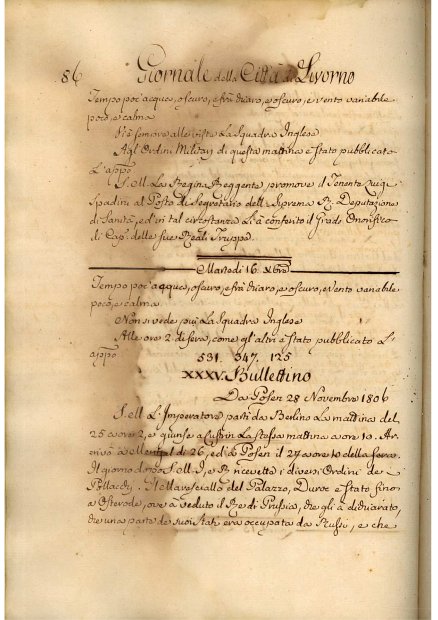 86 Giornale della Città di Livorno
Tempo por' acque, oscuro, e frà chiaro, e oscuro, e vento variabile
poco, e calma
Stà sempre alle viste La Squadra Inglese
Agl'Ordini Militari di questa mattina è stato pubblicato
L'appo
S. M. La Regina Reggente promove il Tenente Luigi
Spadini al Posto di Segretario dell. Suprema R. Deputazione
di Sanità, ed in tal circostanza Li à conferito il Grado Onorifico
di Cap: delle sue Reali Truppe.
Martedi 16 Xbre
Tempo por' acque, oscuro, e frà chiaro, e oscuro, e Vento variabile
poco, e calma
Non si vede più La Squadra Inglese
Alle ore 2 di sera, come gl'altri è stato pubblicato L'
appo 531. 347. 125
XXXV. Bullettino
Da Posen 28 Novembre 1806
S. M. L'Imperatore parti da Berlino La mattina del
25 a ore 2, e giunse a Custrin La stessa mattina a ore 10. Ar-
rivò a il 26, ed a Posen il 27 a ore 10 della sera.
Il giorno dopo S. M. I. e R. ricevette i diversi Ordini de
Pollacchi. Il Maresciallo del Palazzo, Duroc è stato fino
a Osterode, ove à veduto il Re di Prussia, che gli à dichiarato,
che una parte de suoi Stati era occupata da Russi, e che